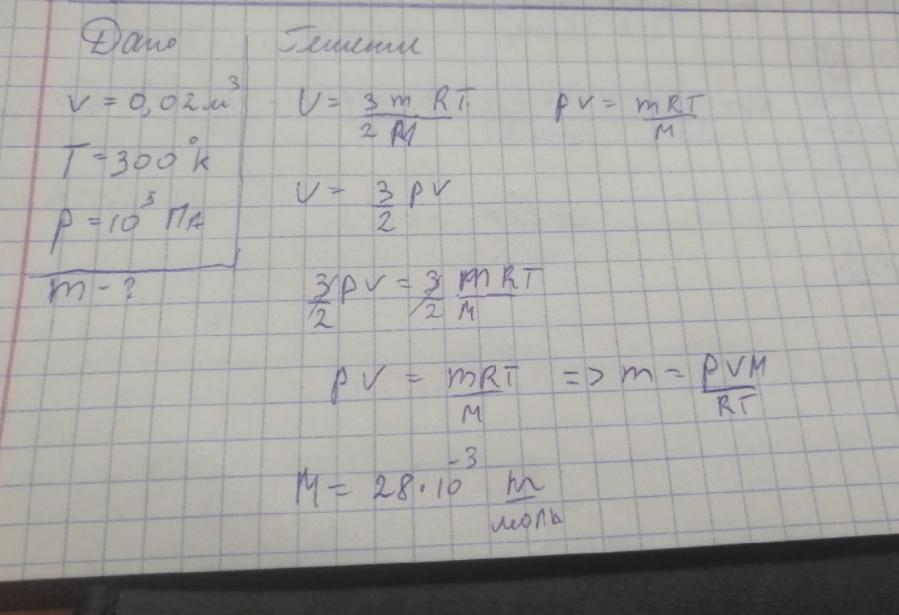 Дано
V = 0,02 м³
T = 300°К
p = 10⁵ ПА
m - ?
Решение
U = 3 m RT / 2 M
pV = mRT / M
U = 3/2 pV
3/2 pV = 3/2 mRT / M
pV = mRT / M => m = pVM / RT
M = 28·10⁻³ m / моль